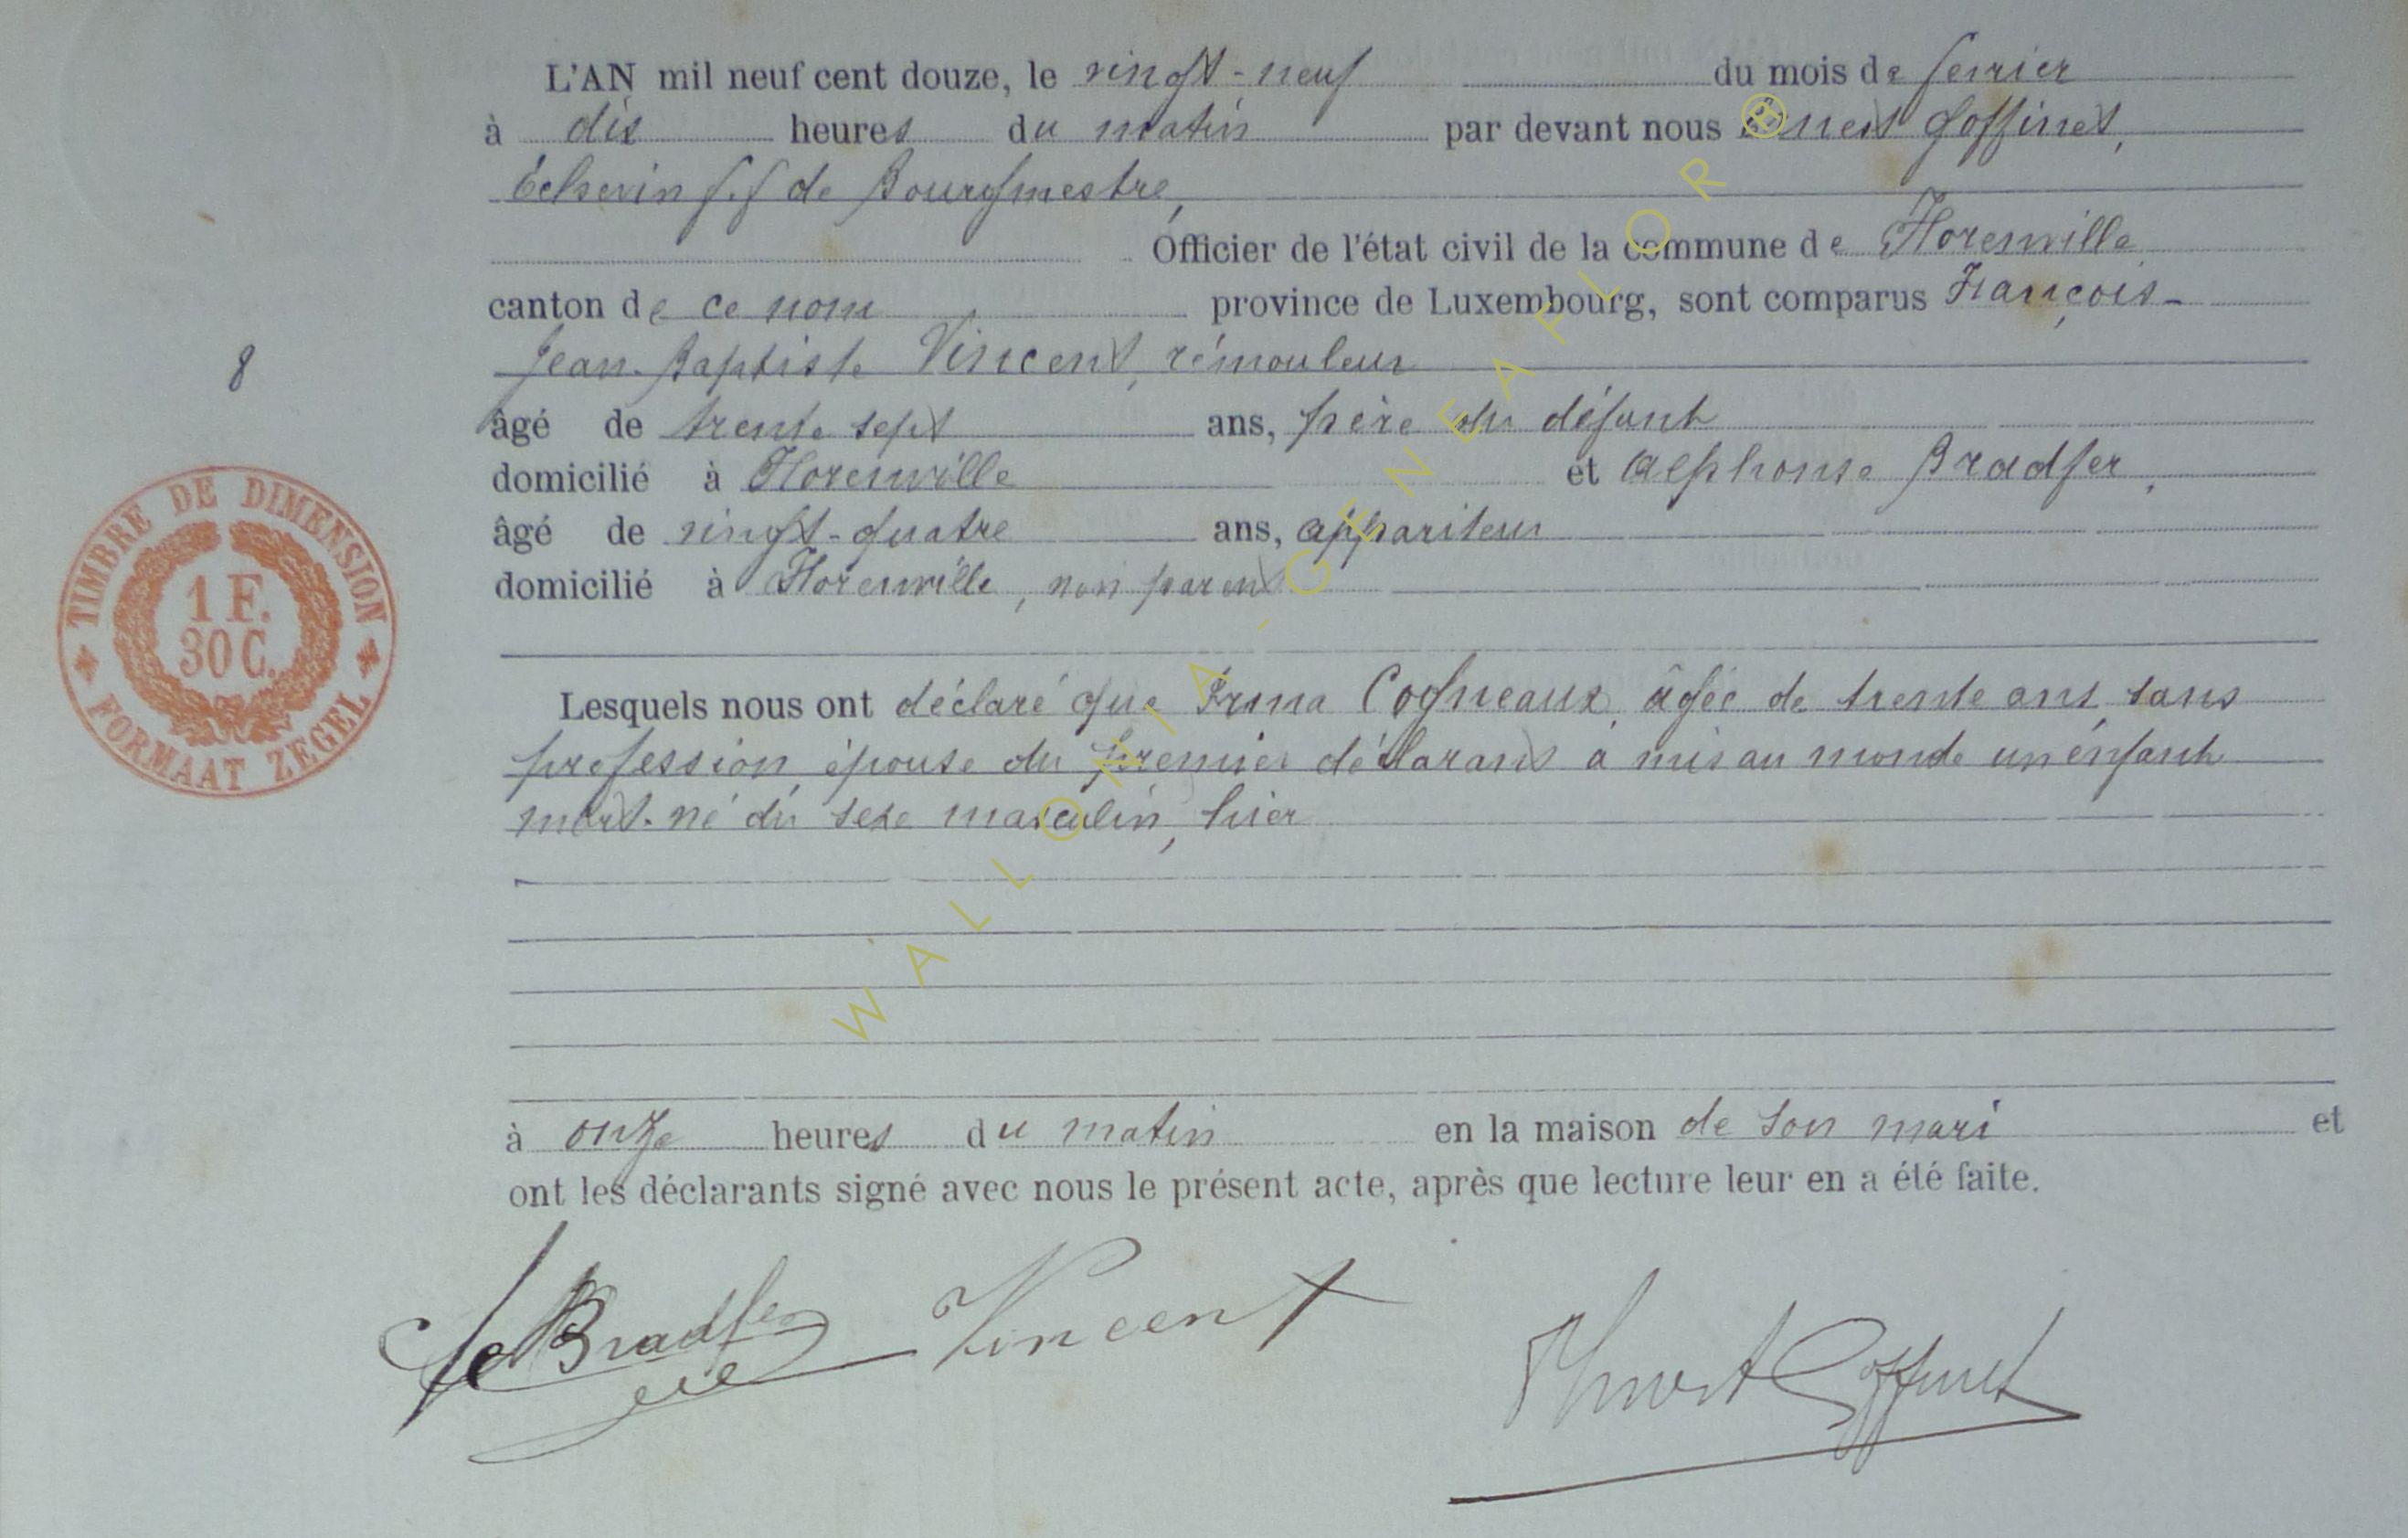 L'AN mil neuf cent douze, le vingt-neuf du mois de fevrier
à dix heures du matin par devant nous Goffinet,
Echevin f.f de Bourgmestre,
Officier de l'état civil de la commune de Florenville
canton de ce nom province de Luxembourg, sont comparus François-
Jean-Baptiste Vincent, rémouleur
8
âgé de trente sept ans, père du défunt
domicilié à Florenville et Alphonse Bradfer,
âgé de vingt-quatre ans, appariteur
domicilié à Florenville, non parent
TIMBRE DE DIMENSION
1 F.
30 C.
FORMAAT ZEGEL
Lesquels nous ont déclaré que Irma Cogneaux, âgée de trente ans, sans
profession, épouse du premier déclarant a mis au monde un enfant
mort-né du sexe masculin, hier
à onze heures du matin en la maison de son mari et
ont les déclarants signé avec nous le présent acte, après que lecture leur en a été faite.
Bradfer Vincent Goffinet
WALLONIA - GENEAFLOR ®